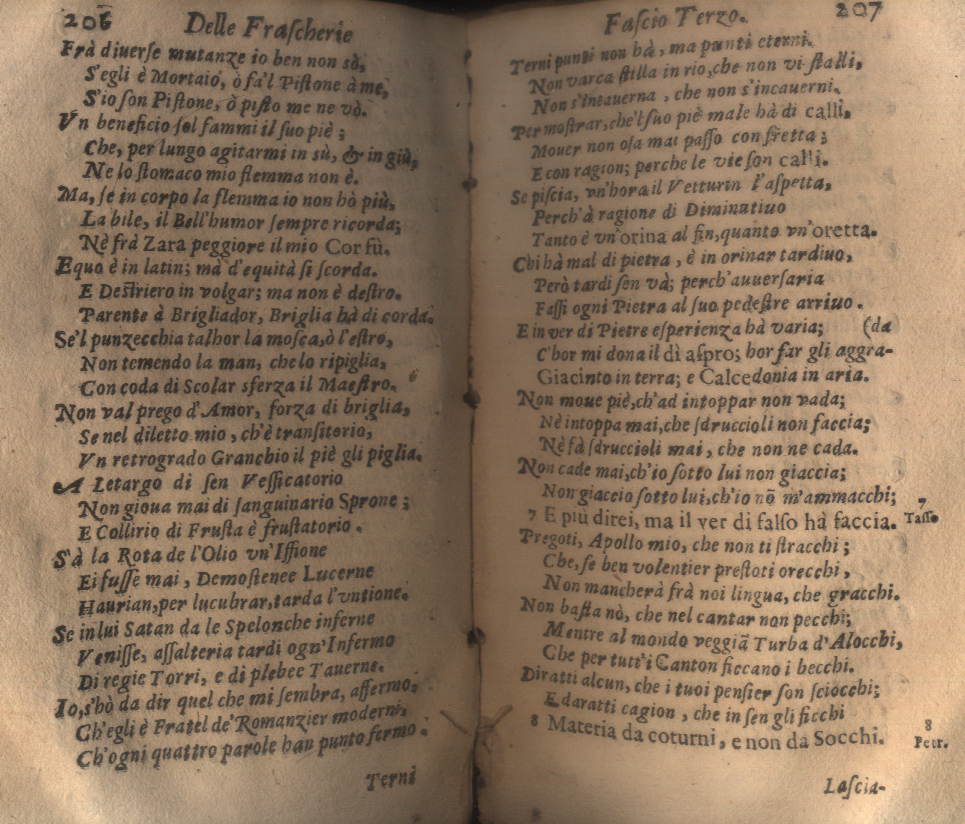 206 Delle Fraſcherie
Frà diuerſe mutanze io ben non sò,
S'egli è Mortaio, ò fa'l Piſtone à me,
S'io ſon Piſtone, ò piſto me ne vò.
Vn beneficio ſol fammi il ſuo piè;
Che, per lungo agitarmi in sù, & in giù,
Ne lo ſtomaco mio flemma non è.
Ma, ſe in corpo la flemma io non hò più,
La bile, il Bell'humor ſempre ricorda;
Nè frà Zara peggiore il mio Cor fù.
Equo è in latin; mà d'equità ſi ſcorda.
E Deſtriero in volgar; ma non è deſtro.
Parente à Brigliador, Briglia hà di corda.
Se'l punzecchia talhor la moſca, ò l'eſtro,
Non temendo la man, che lo ripiglia,
Con coda di Scolar sferza il Maeſtro.
Non val prego d'Amor, forza di briglia,
Se nel diletto mio, ch'è tranſitorio,
Vn retrogrado Granchio il piè gli piglia.
A Letargo di ſen Veſſicatorio
Non gioua mai di ſanguinario Sprone;
E Collirio di Fruſta è fruſtatorio.
S'à la Rota de l'Olio vn'Iſſione
Ei fuſſe mai, Demoſtenee Lucerne
Haurian, per lucubrar, tarda l'vntione.
Se in lui Satan da le Spelonche inferne
Veniſſe, aſſalteria tardi ogn'Infermo
Di regie Torri, e di plebee Tauerne.
Io, s'hò da dir quel che mi ſembra, affermo,
Ch'egli è Fratel de' Romanzier moderni,
Ch'ogni quattro parole han punto fermo.
Terni
Faſcio Terzo. 207
Terni punti non hà, ma punti eterni.
Non varca ſtilla in rio, che non vi ſtalli,
Non s'incauerna, che non s'incauerni.
Per moſtrar, che'l ſuo piè male hà di calli,
Mouer non oſa mai paſſo con fretta;
E con ragion; perche le vie ſon calli.
Se piſcia, vn'hora il Vetturin l'aſpetta,
Perch'à ragione di Diminutiuo
Tanto è vn'orina al fin, quanto vn'oretta.
Chi hà mal di pietra, è in orinar tardiuo,
Però tardi ſen và; perch'auuerſaria
Faſſi ogni Pietra al ſuo pedeſtre arriuo.
E in ver di Pietre eſperienza hà varia; (da
C'hor mi dona il dì aſpro; hor far gli aggra-
Giacinto in terra; e Calcedonia in aria.
Non moue piè, ch'ad intoppar non vada;
Nè intoppa mai, che ſdruccioli non faccia;
Nè fà ſdruccioli mai, che non ne cada.
Non cade mai, ch'io ſotto lui non giaccia;
Non giaccio ſotto lui, ch'io nō m'ammacchi;
7 E più direi, ma il ver di falſo hà faccia. 7 Taſſo
Pregoti, Apollo mio, che non ti ſtracchi;
Che, ſe ben volentier preſtoti orecchi,
Non mancherà frà noi lingua, che gracchi.
Non baſta nò, che nel cantar non pecchi;
Mentre al mondo veggiā Turba d'Alocchi,
Che per tutt'i Canton ficcano i becchi.
Diratti alcun, che i tuoi penſier ſon ſciocchi;
E daratti cagion, che in ſen gli ficchi
8 Materia da coturni, e non da Socchi. 8 Petr.
Laſcia-